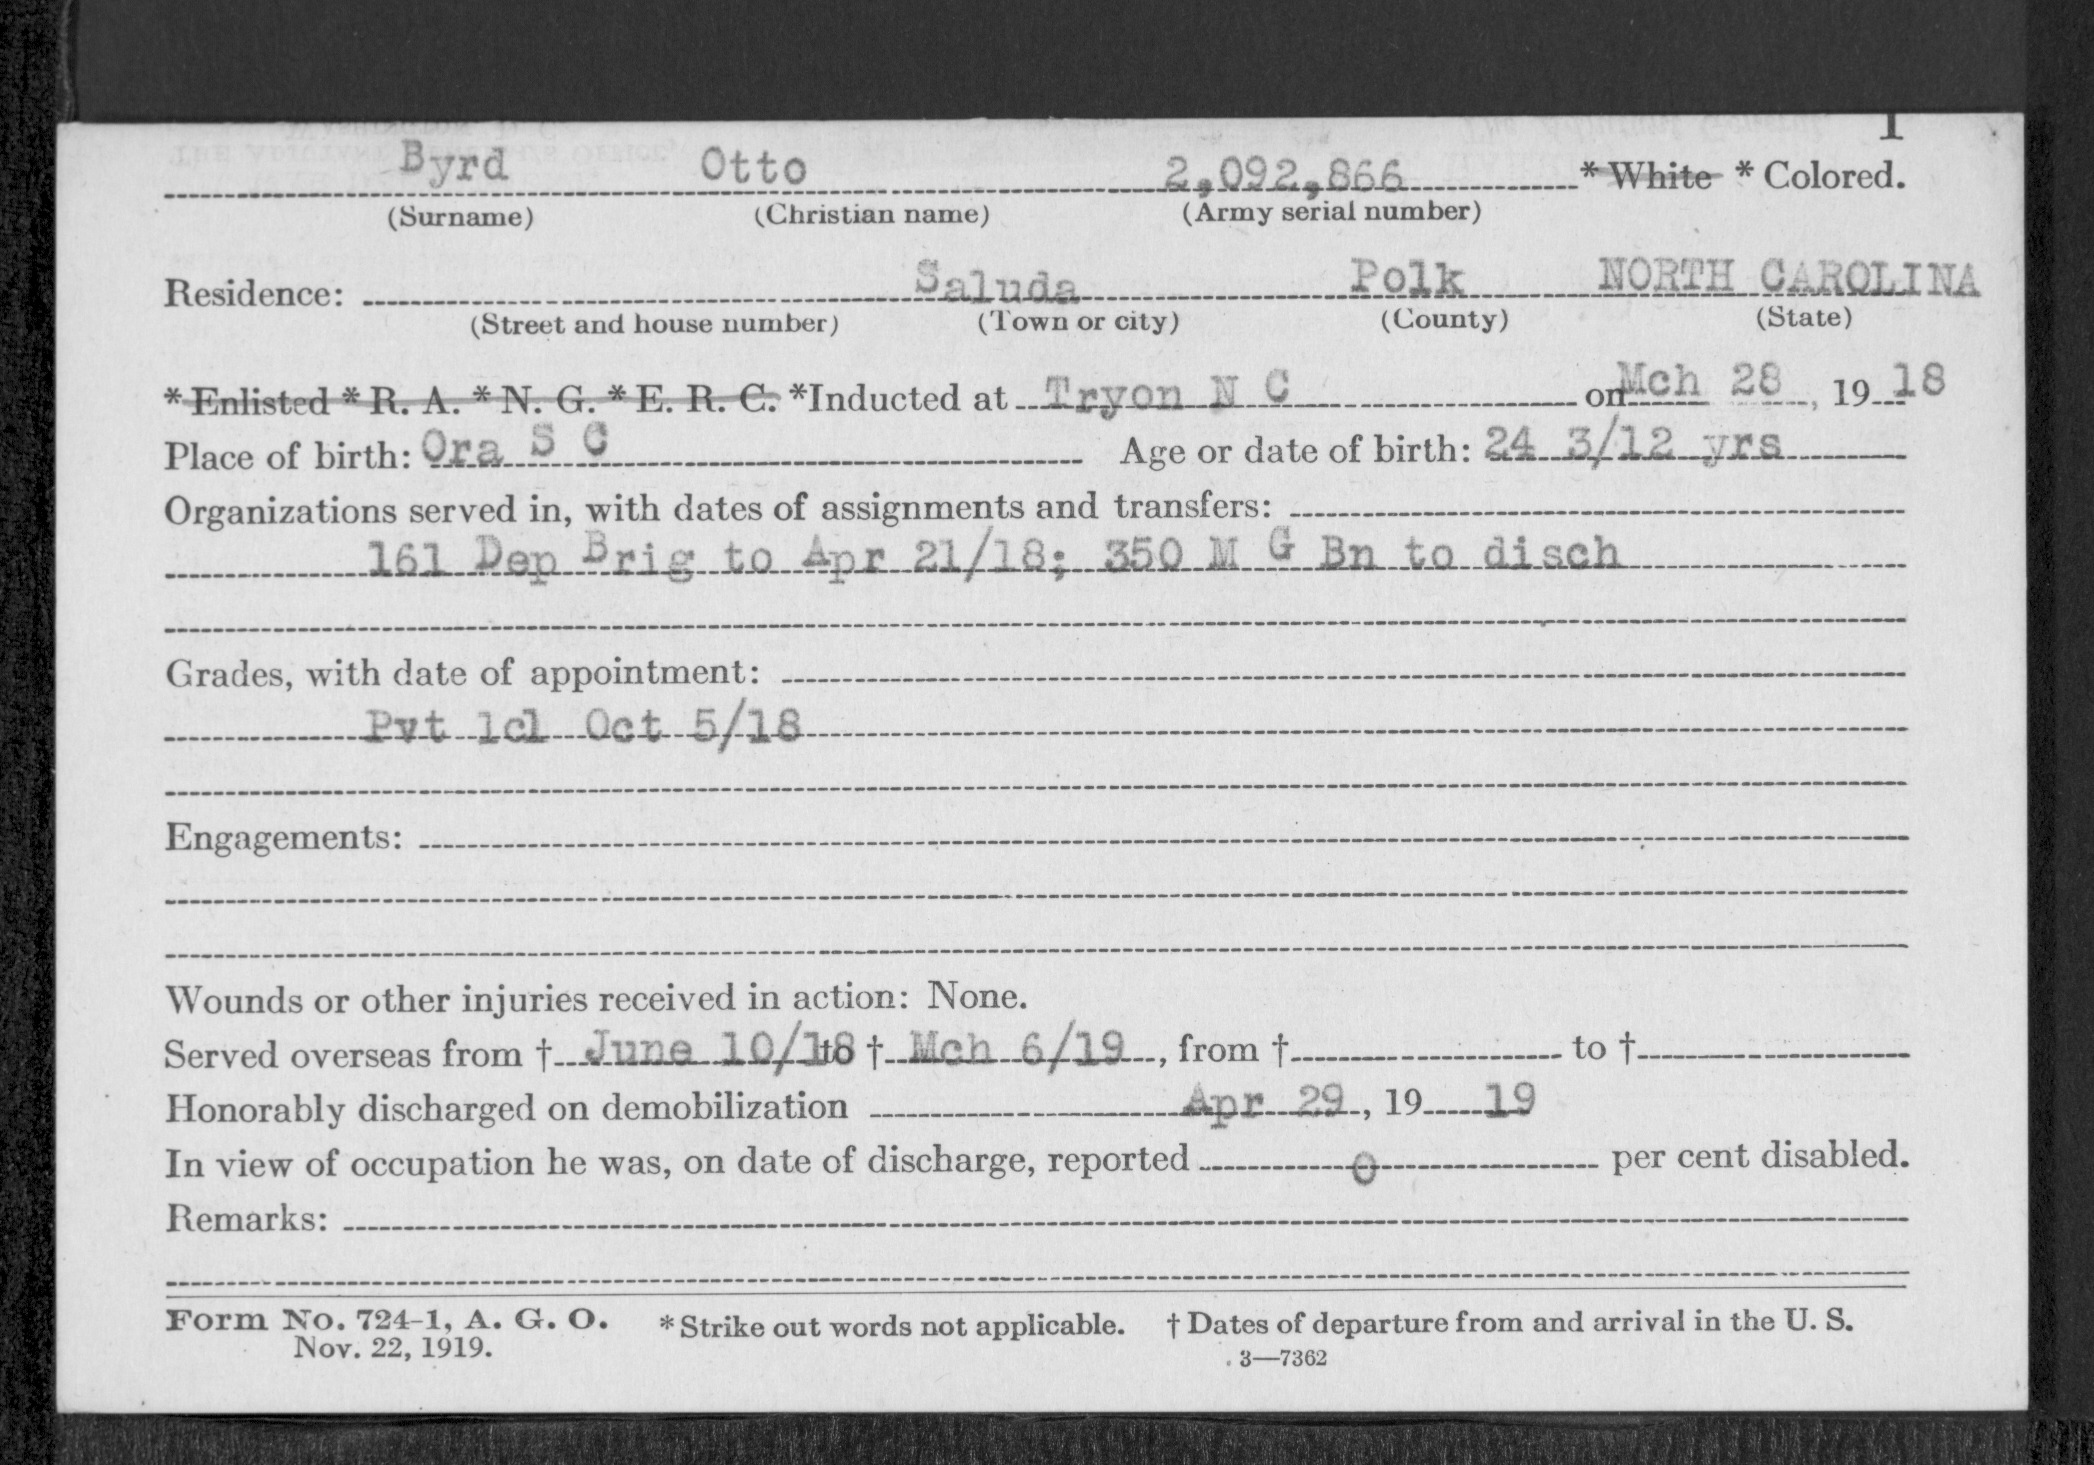 1
Byrd Otto 2,092,866 * White * Colored.
(Surname) (Christian name) (Army serial number)
Residence: Saluda Polk NORTH CAROLINA
(Street and house number) (Town or city) (County) (State)
* Enlisted * R. A. * N. G. * E. R. C. *Inducted at Tryon N C on Mch 28, 19 18
Place of birth: Ora S C Age or date of birth: 24 3/12 yrs
Organizations served in, with dates of assignments and transfers:
161 Dep Brig to Apr 21/18; 350 M G Bn to disch
Grades, with date of appointment:
Pvt 1cl Oct 5/18
Engagements:
Wounds or other injuries received in action: None.
Served overseas from † June 10/18 to † Mch 6/19, from † to †
Honorably discharged on demobilization Apr 29, 19 19
In view of occupation he was, on date of discharge, reported 0 per cent disabled.
Remarks:
Form No. 724-1, A. G. O. * Strike out words not applicable. † Dates of departure from and arrival in the U. S.
Nov. 22, 1919. 3—7362